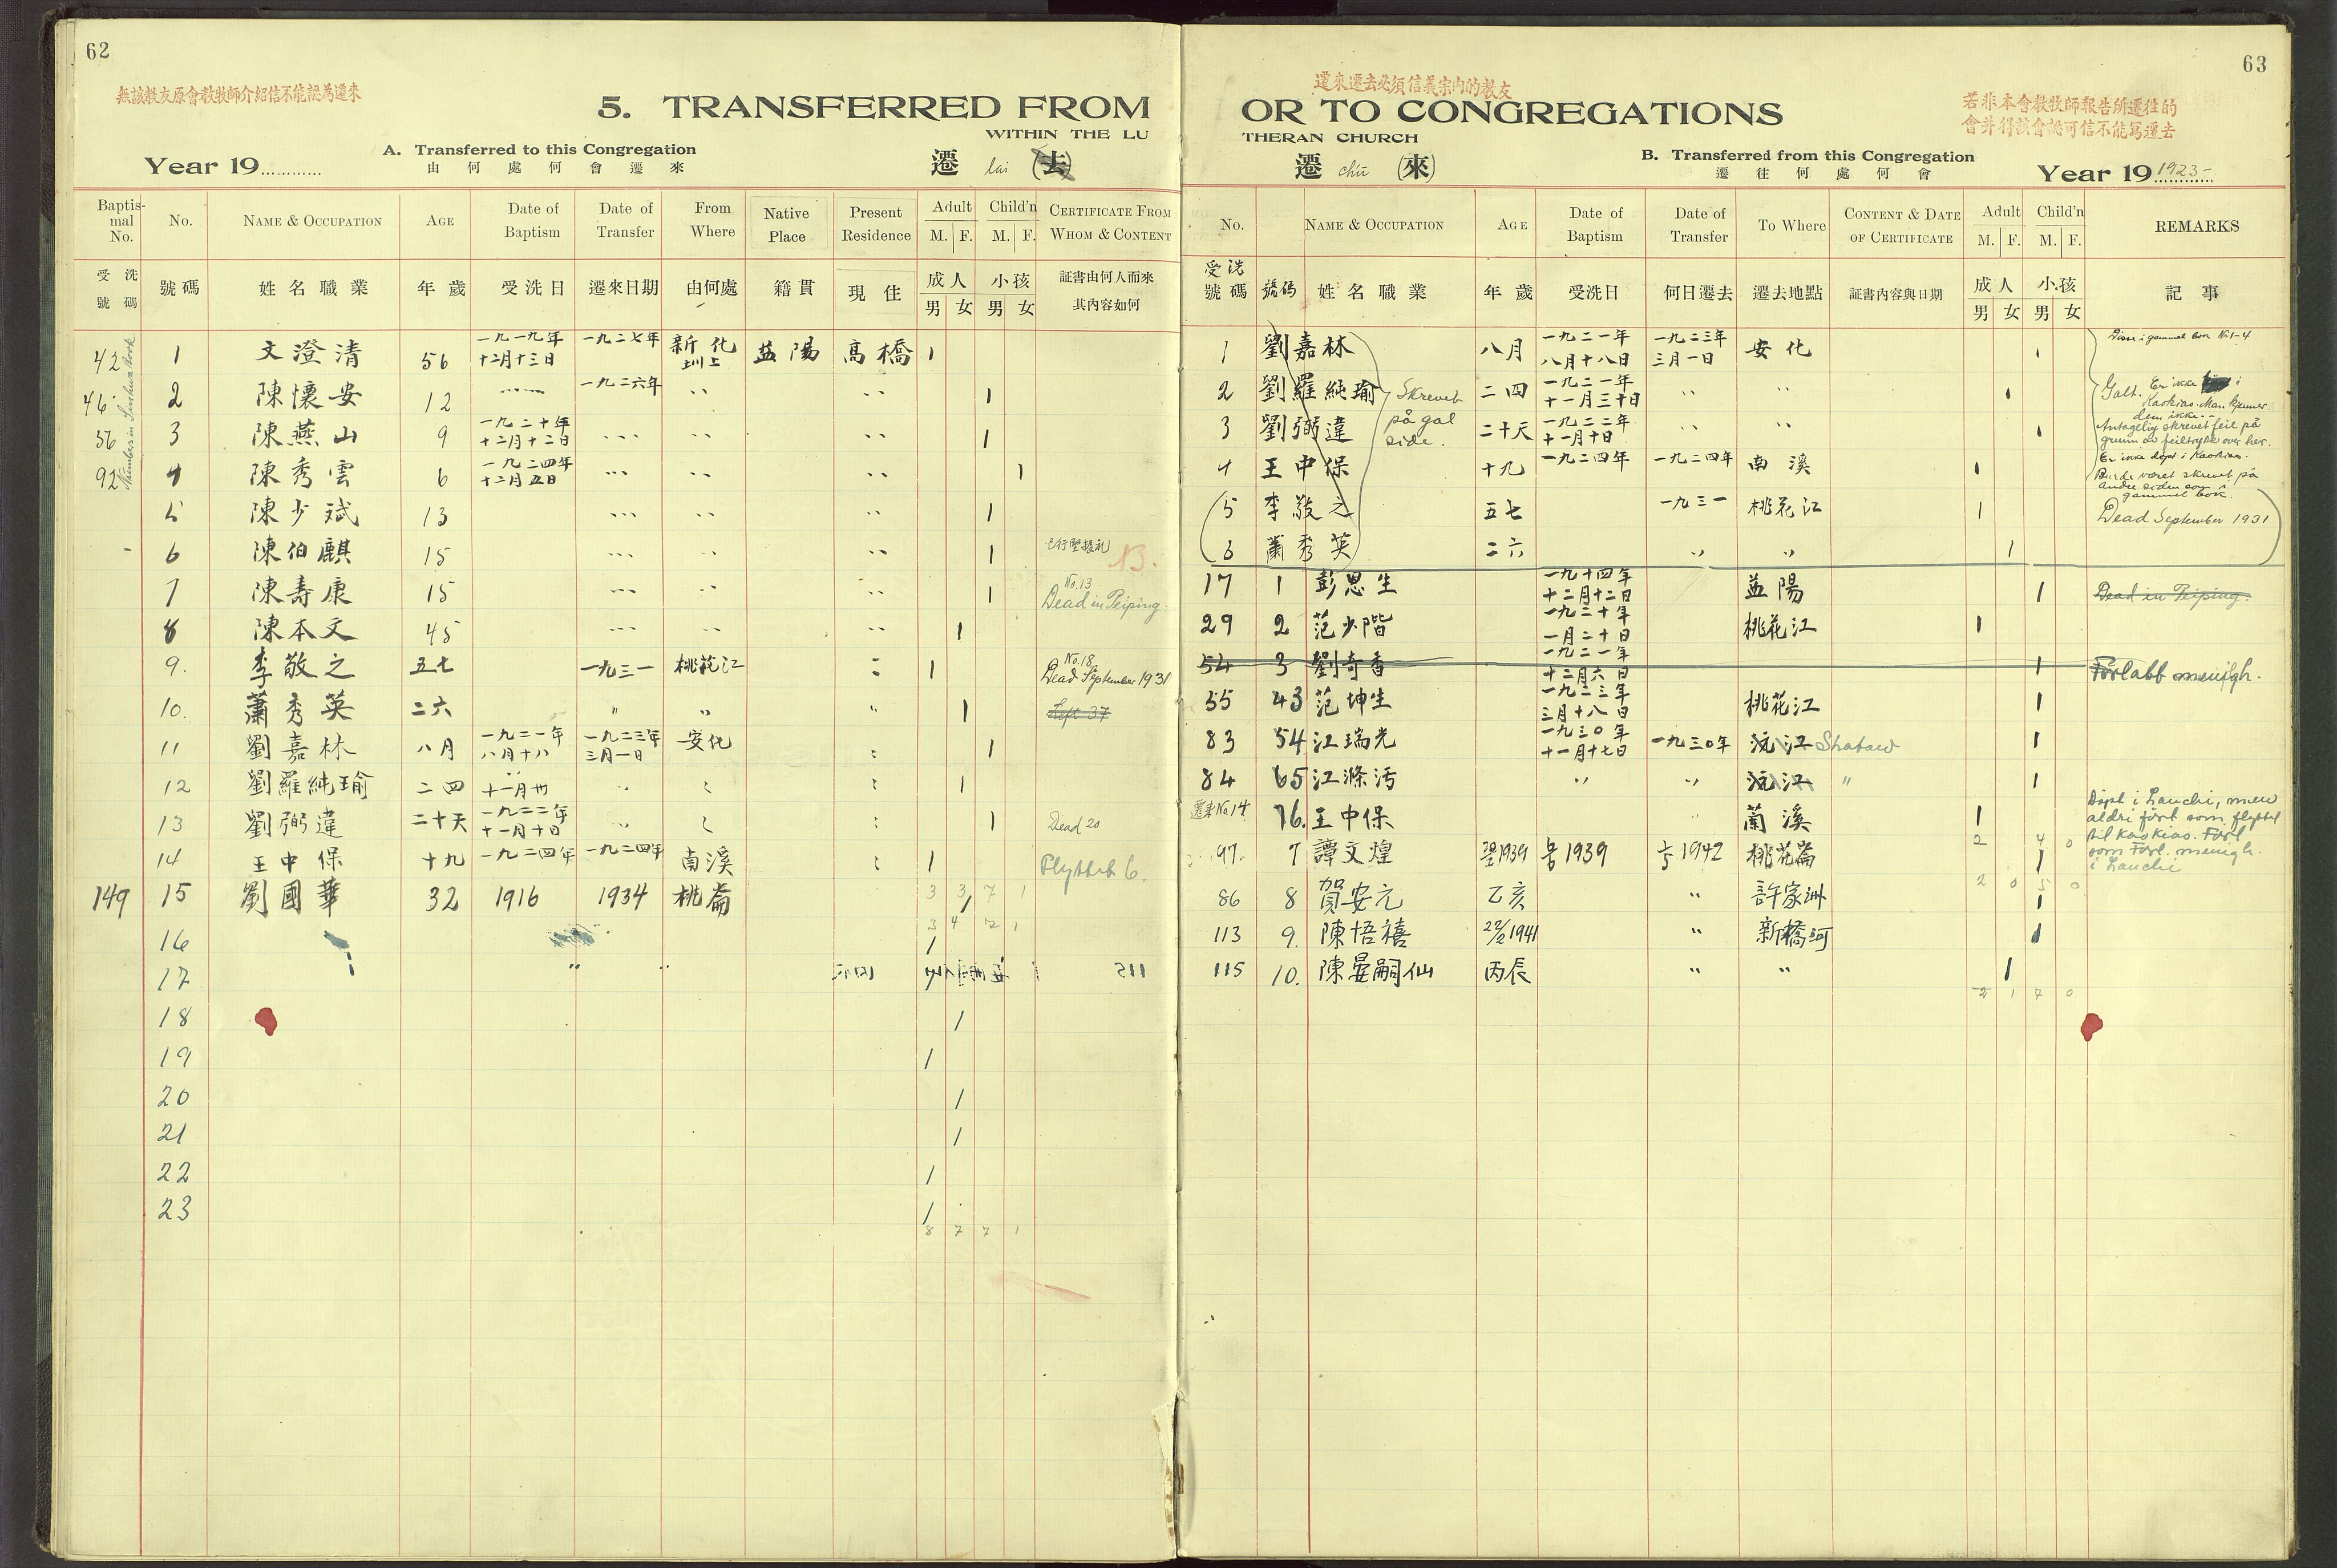 62
無該教友原會教牧師介紹信不能認為遷來
5. TRANSFERRED FROM
WITHIN THE LU
A. Transferred to this Congregation
由何處何會遷來
Year 19
遷 lai (去)
Baptismal No. No. NAME & OCCUPATION AGE Date of Baptism Date of Transfer From Where Native Place Present Residence Adult M. F. Child'n M. F. CERTIFICATE FROM WHOM & CONTENT
受洗號碼 號碼 姓名職業 年歲 受洗日 遷來日期 由何處 籍貫 現住 成人 男 女 小孩 男 女 証書由何人而來其內容如何
42 1 文澄清 56 一九一九年十二月十三日 一九二七年 新化 益陽 高橋 1
46 2 陳懷安 12 一九二六年 1
56 3 陳燕山 9 一九二十年十二月十二日 1
92 4 陳秀雲 6 一九二四年十二月五日 1
5 陳少斌 13 1
6 陳伯麒 15 1 13.
7 陳壽康 15 1 No. 13 Dead in Peiping.
8 陳本文 45 1
9. 李敬之 五七 一九三一 桃花江 1 No. 18 Dead September 1931
10. 蕭秀英 二六 " " " 1
11 劉嘉林 八月 一九二一年八月十八 一九二三年三月一日 安化 1
12 劉羅純瑜 二四 十一月卅 1
13 劉弼違 二十天 一九二二年十一月十日 1 Dead 20
14 王中保 十九 一九二四年 一九二四年 南溪 1 Flyttet 6.
149 15 劉國華 32 1916 1934 桃崙 1
3 3 7 1
3 4 7 1
16 1
17 1
18 1
19 1
20 1
21 1
22 1
23 1
8 7 7 1
63
遷來遷去必須信義宗內的教友
OR TO CONGREGATIONS
THERAN CHURCH
若非本會教牧師報告所遷往的
會并得該會認可信不能寫遷去
遷 chü (來)
B. Transferred from this Congregation
遷往何處何會
Year 19 1923-
No. NAME & OCCUPATION AGE Date of Baptism Date of Transfer To Where CONTENT & DATE OF CERTIFICATE Adult M. F. Child'n M. F. REMARKS
受洗號碼 號碼 姓名職業 年歲 受洗日 何日遷去 遷去地點 証書內容與日期 成人 男 女 小孩 男 女 記事
1 劉嘉林 八月 一九二一年八月十八日 一九二三年三月一日 安化 1
Disse i gammel bok No 1-4
2 劉羅純瑜 二四 一九二一年十一月三十日 1
Skrevet på gal side.
Galt. Er ikke i Kaokiao. Man kjenner dem ikke.
3 劉弼違 二十天 一九二二年十一月十日 1
Antagelig skrevet feil på grunn av feiltrykk over her.
Er ikke døpt i Kaokiao.
4 王中保 十九 一九二四年 一九二四年 南溪 1
Burde været skrevet på andre siden som gammel bok.
5 李敬之 五七 一九三一 桃花江 1 Dead September 1931
6 蕭秀英 二六 " " 1
17 1 彭恩生 一九十四年十二月十二日 益陽 1 Dead in Peiping.
29 2 范少階 一九二十年一月二十日 桃花江 1
54 3 劉奇香 一九二一年十二月六日 1 Forlatt menigh.
55 43 范坤生 一九二三年三月十八日 桃花江 1
83 54 江瑞光 一九三〇年十一月十七日 一九三〇年 沅江 Shataw 1
84 65 江滌污 " " 沅江 " 1
遷來 No 14 76. 王中保 蘭溪 1
Døpt i Lauchi, men aldri ført som flyttet til Kaokiao. Ført som Forl. menigh. i Lauchi
2 4 0
97. 7 譚文煌 1939 1939 1942 桃花崙 1
2 0 5 0
86 8 賀安元 乙亥 " 許家洲 1
113 9. 陳悟禧 22/2 1941 " 新橋河 1
115 10. 陳晏嗣仙 丙辰 " " 1
2 1 7 0